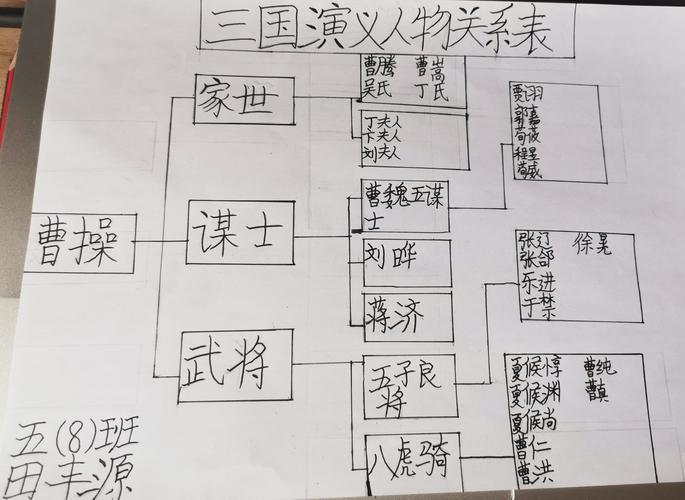 三国演义人物关系表
曹操
家世
曹腾 曹嵩
吴氏 丁氏
丁夫人
卞夫人
刘夫人
谋士
曹魏五谋
士
贾诩
郭嘉
荀攸
程昱
荀彧
刘晔
蒋济
武将
五子良
将
张辽 徐晃
张郃
乐进
于禁
八虎骑
夏侯惇 曹纯
夏侯渊 曹真
夏侯尚
曹仁
曹洪
五(8)班
田丰源